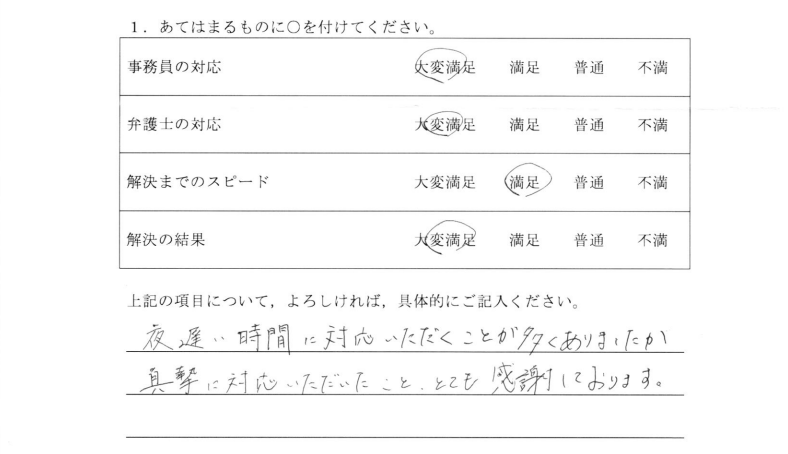 1．あてはまるものに○を付けてください。
事務員の対応 大変満足 満足 普通 不満
弁護士の対応 大変満足 満足 普通 不満
解決までのスピード 大変満足 満足 普通 不満
解決の結果 大変満足 満足 普通 不満
上記の項目について，よろしければ，具体的にご記入ください。
夜遅い時間に対応いただくことが多くありましたが
真摯に対応いただいたこと、とても感謝しております。